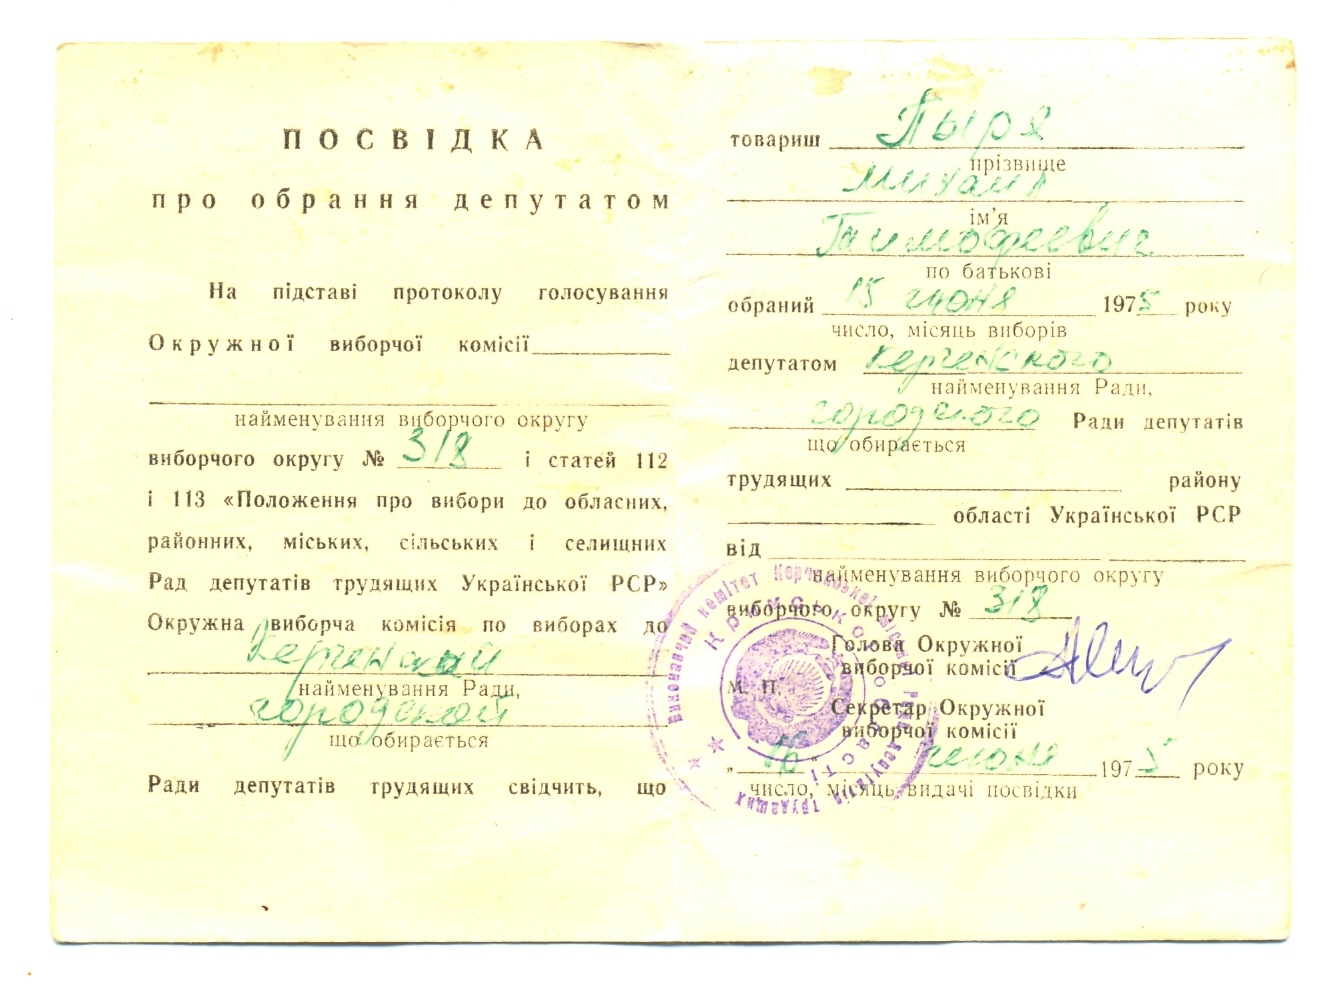 ПОСВІДКА
про обрання депутатом
На підставі протоколу голосування
Окружної виборчої комісії
найменування виборчого округу
виборчого округу № 318 і статей 112
і 113 «Положення про вибори до обласних,
районних, міських, сільських і селищних
Рад депутатів трудящих Української РСР»
Окружна виборча комісія по виборах до
Керченский
найменування Ради,
городской
що обирається
Ради депутатів трудящих свідчить, що
товариш Пыря
прізвище
Михаил
ім'я
Тимофеевич
по батькові
обраний 15 июня 1975 року
число, місяць виборів
депутатом Керченского
найменування Ради,
городского Ради депутатів
що обирається
трудящих району
області Української РСР
від
найменування виборчого округу
виборчого округу № 318
Голова Окружної
виборчої комісії
М. П.
Секретар Окружної
виборчої комісії
„16“ июня 1975 року
число, місяць видачі посвідки
Виконавчий комітет Керченської міської Ради депутатів трудящих
Кримської області